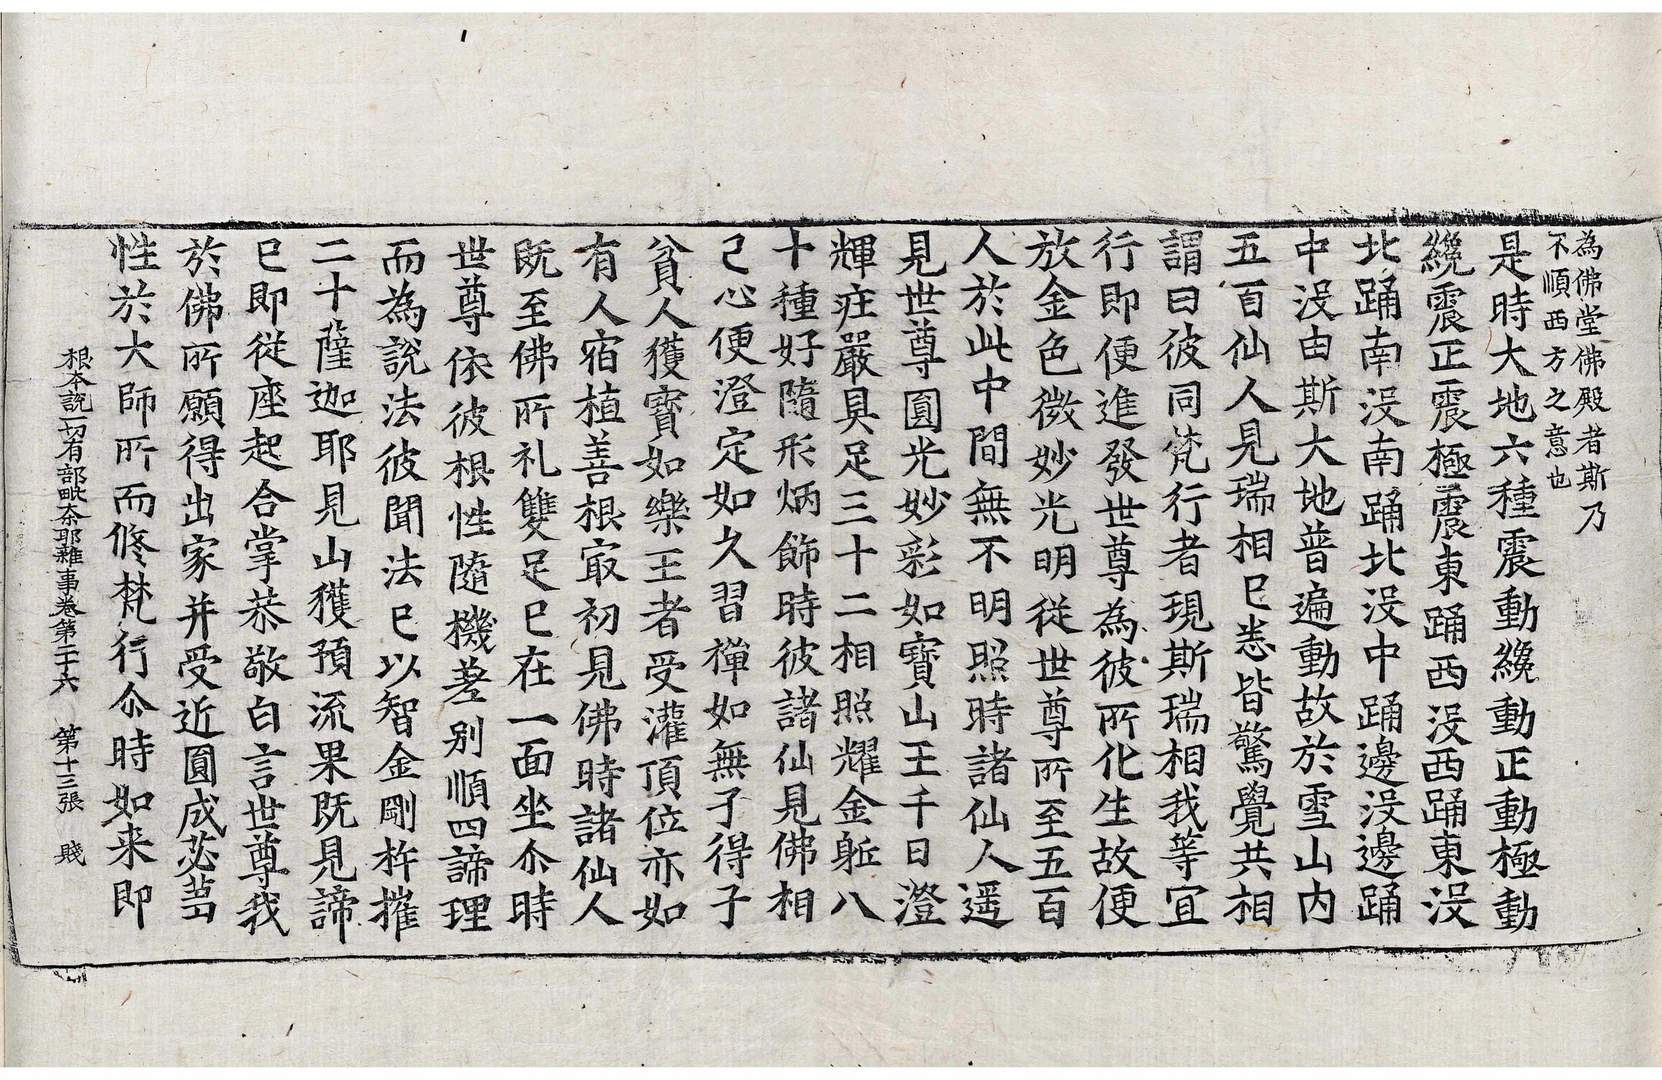 為佛堂佛殿者斯乃
不順西方之意也
是時大地六種震動纔動正動極動
纔震正震極震東踊西没西踊東没
北踊南没南踊北没中踊邊没邊踊
中没由斯大地普遍動故於雪山内
五百仙人見瑞相已悉皆驚覺共相
謂曰彼同梵行者現斯瑞相我等宜
行即便進發世尊為彼所化生故便
放金色微妙光明從世尊所至五百
人於此中間無不明照時諸仙人遥
見世尊圓光妙彩如寶山王千日澄
輝疘嚴具足三十二相照耀金軀八
十種好隨形炳飾時彼諸仙見佛相
已心便澄定如久習禪如無子得子
貧人獲寶如樂王者受灌頂位亦如
有人宿植善根冣初見佛時諸仙人
既至佛所礼雙足已在一面坐尒時
世尊依彼根性隨機差別順四諦理
而為説法彼聞法已以智金剛杵摧
二十薩迦耶見山獲預流果既見諦
已即從座起合掌恭敬白言世尊我
於佛所願得出家并受近圓成苾蒭
性於大師所而修梵行尒時如来即
根本説一切有部毗奈耶雜事卷第二十六　第十三張　賤